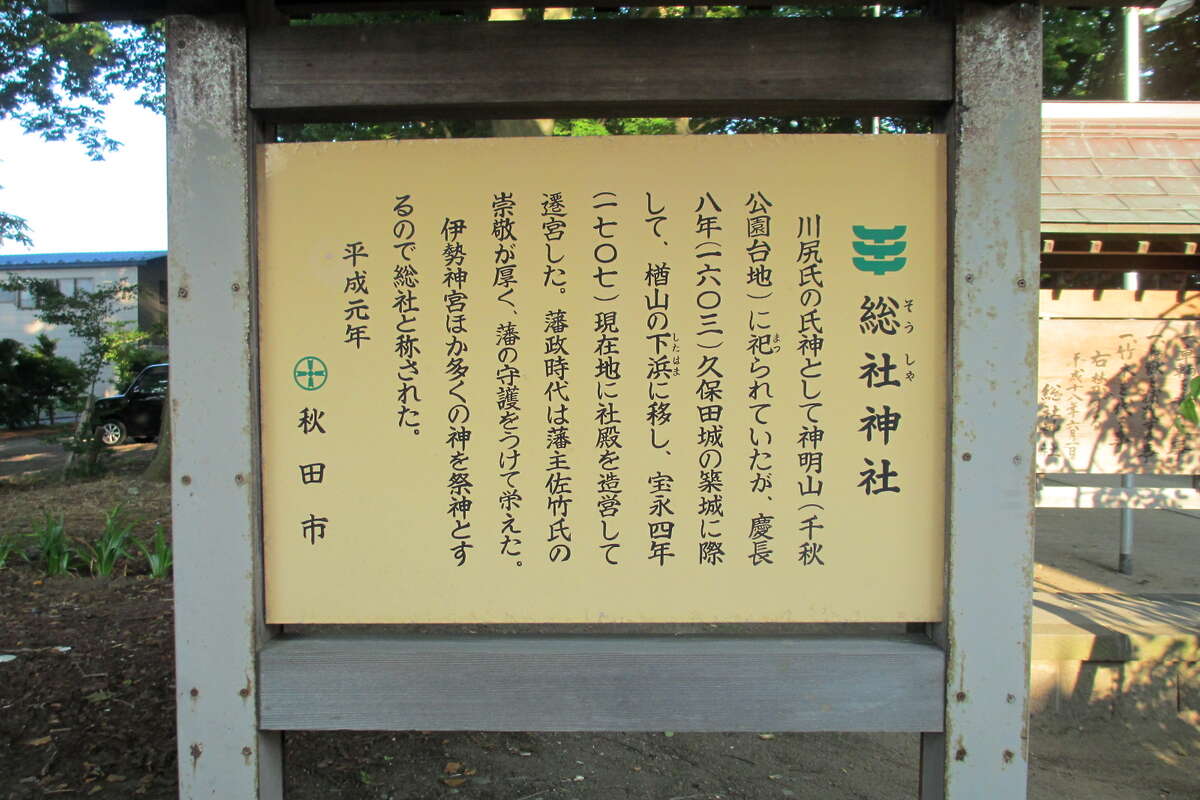 総社神社
そうしゃ
川尻氏の氏神として神明山（千秋
公園台地）に祀られていたが、慶長
まつ
八年（一六〇三）久保田城の築城に際
して、楢山の下浜に移し、宝永四年
したはま
（一七〇七）現在地に社殿を造営して
遷宮した。藩政時代は藩主佐竹氏の
崇敬が厚く、藩の守護をうけて栄えた。
伊勢神宮ほか多くの神を祭神とす
るので総社と称された。
平成元年
秋田市